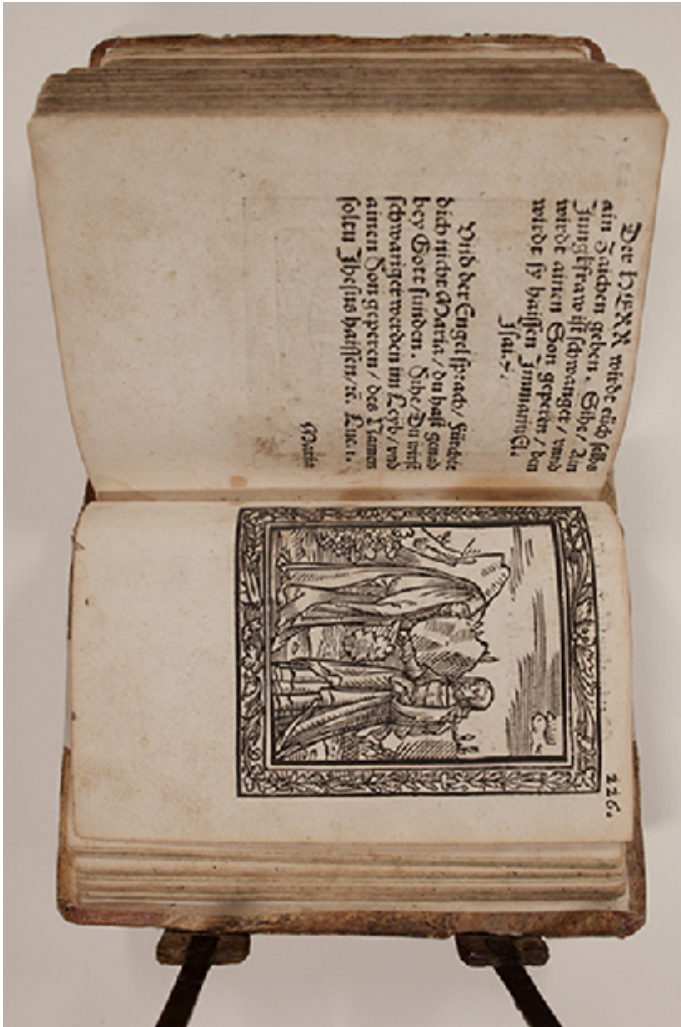 Der HERR wirdt eüch selbs
ain Zaichen geben. Sihe/ Ain
Jungkfraw ist schwanger/ vnnd
wirdt ainen Son geperen/ den
wirdt sy haissen Immanuel.
Isai. 7.
Vnd der Engel sprach/ Fürchte
dich nicht Maria/ du hast genad
bey Gott funden. Sihe/ Du wirst
schwanger werden im Leyb/ vnd
ainen Son geperen/ des Namen
solen Jhesus haissen/ ꝛc. Luc. 1.
Maria
226.